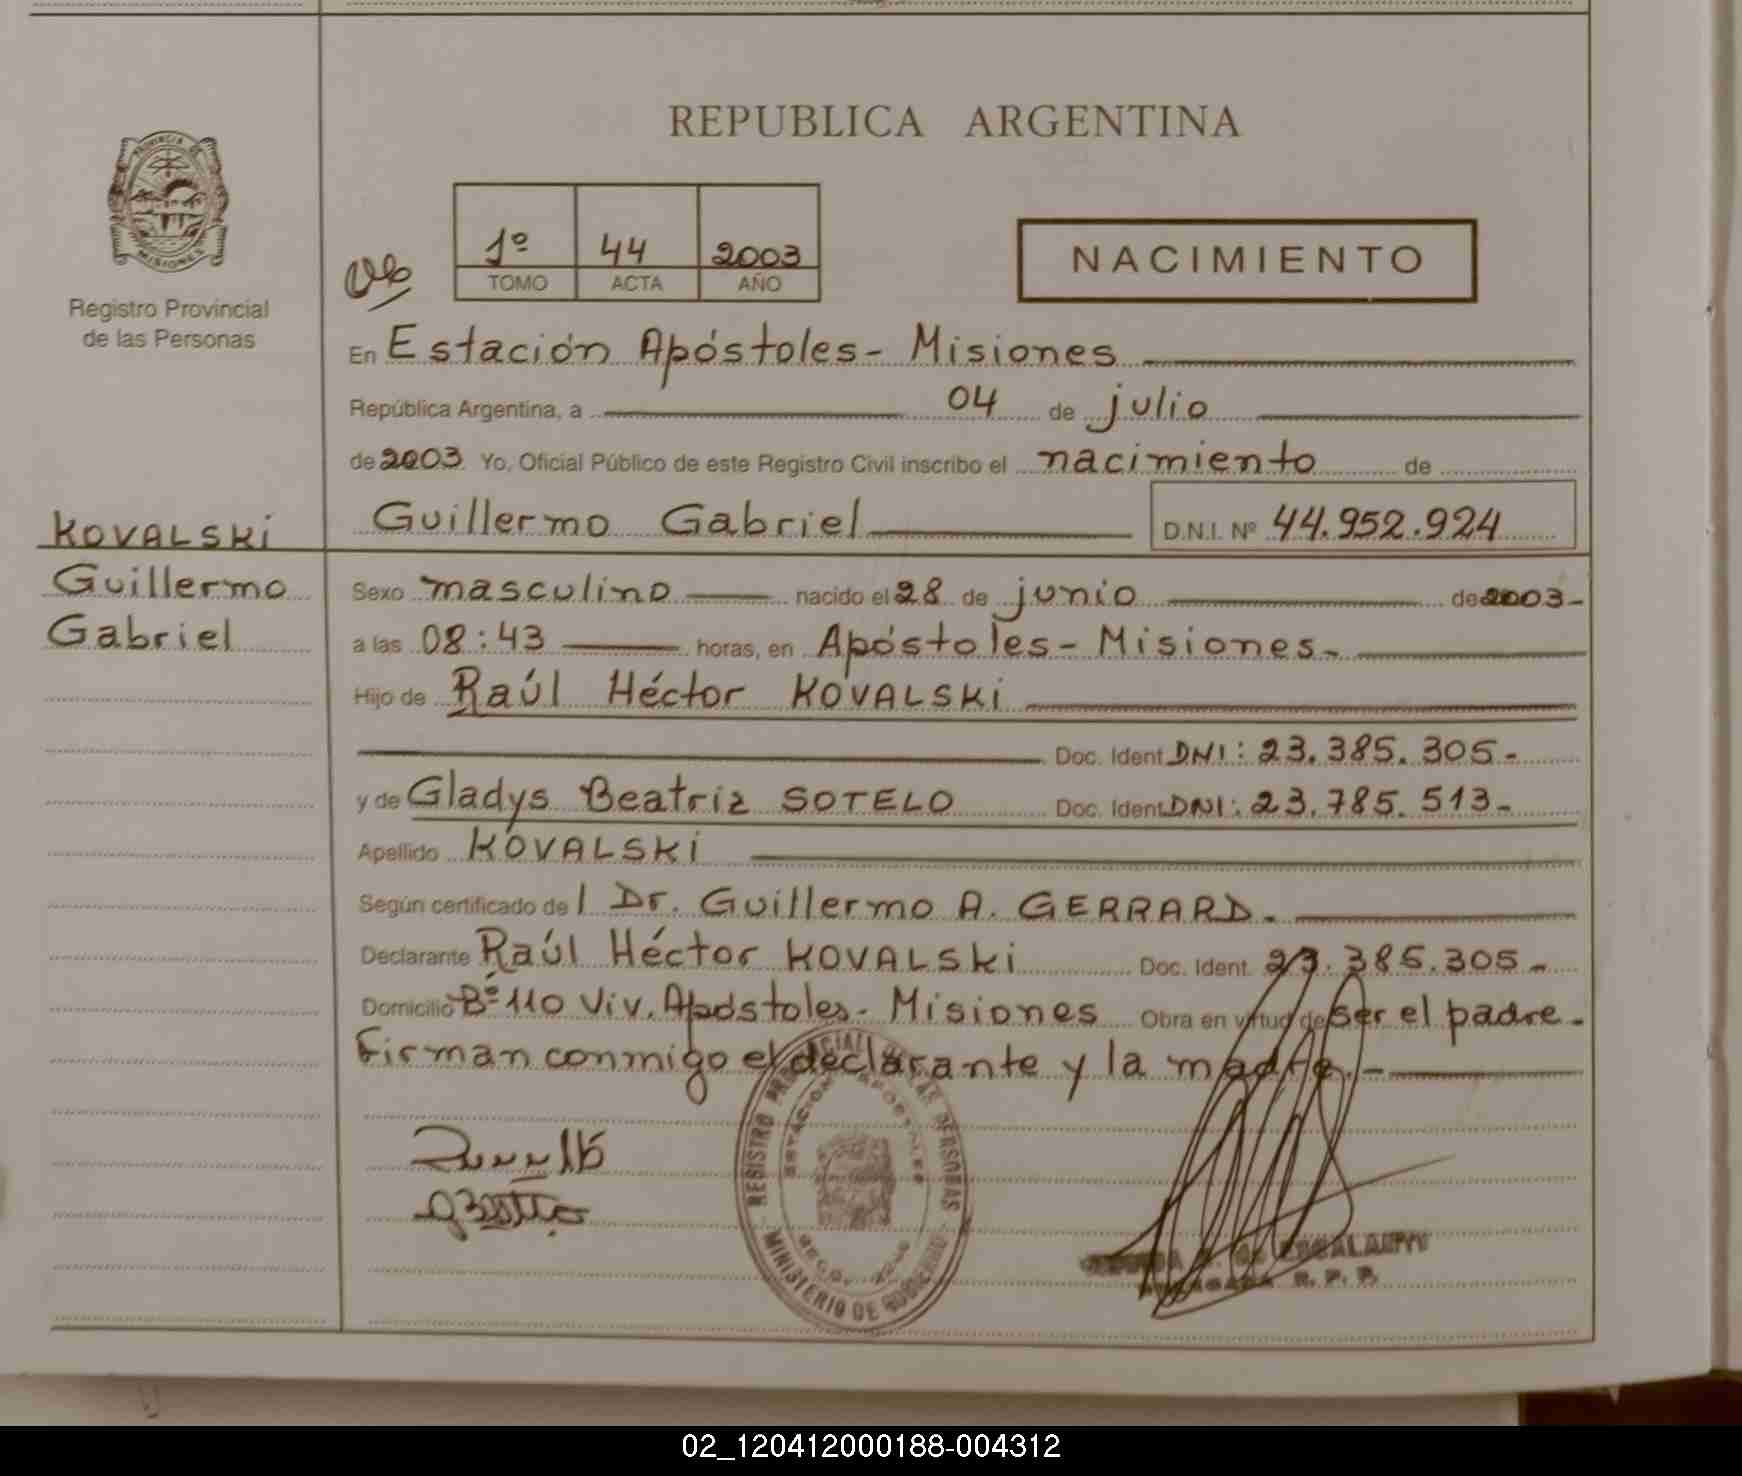 REPUBLICA ARGENTINA
PROVINCIA DE
MISIONES
Registro Provincial
de las Personas
1º 44 2003
TOMO ACTA AÑO
NACIMIENTO
En Estación Apóstoles- Misiones
República Argentina, a 04 de julio
de 2003 Yo, Oficial Público de este Registro Civil inscribo el nacimiento de
KOVALSKi
Guillermo
Gabriel
Guillermo Gabriel D.N.I. Nº 44.952.924
Sexo masculino nacido el 28 de junio de 2003-
a las 08:43 horas, en Apóstoles- Misiones-
Hijo de Raúl Héctor KOVALSKi
Doc. Ident DNI: 23.385.305-
y de Gladys Beatriz SOTELO Doc. Ident DNI: 23.785.513-
Apellido KOVALSKi
Según certificado del Dr. Guillermo A. GERRARD.
Declarante Raúl Héctor KOVALSKi Doc. Ident. 23.385.305-
Domicilio Bº 110 Viv. Apóstoles- Misiones Obra en virtud de ser el padre.
Firman conmigo el declarante y la madre.-
REGISTRO PROVINCIAL DE LAS PERSONAS
ESTACION APOSTOLES
MINISTERIO DE GOBIERNO
R. P. P.
02_120412000188-004312